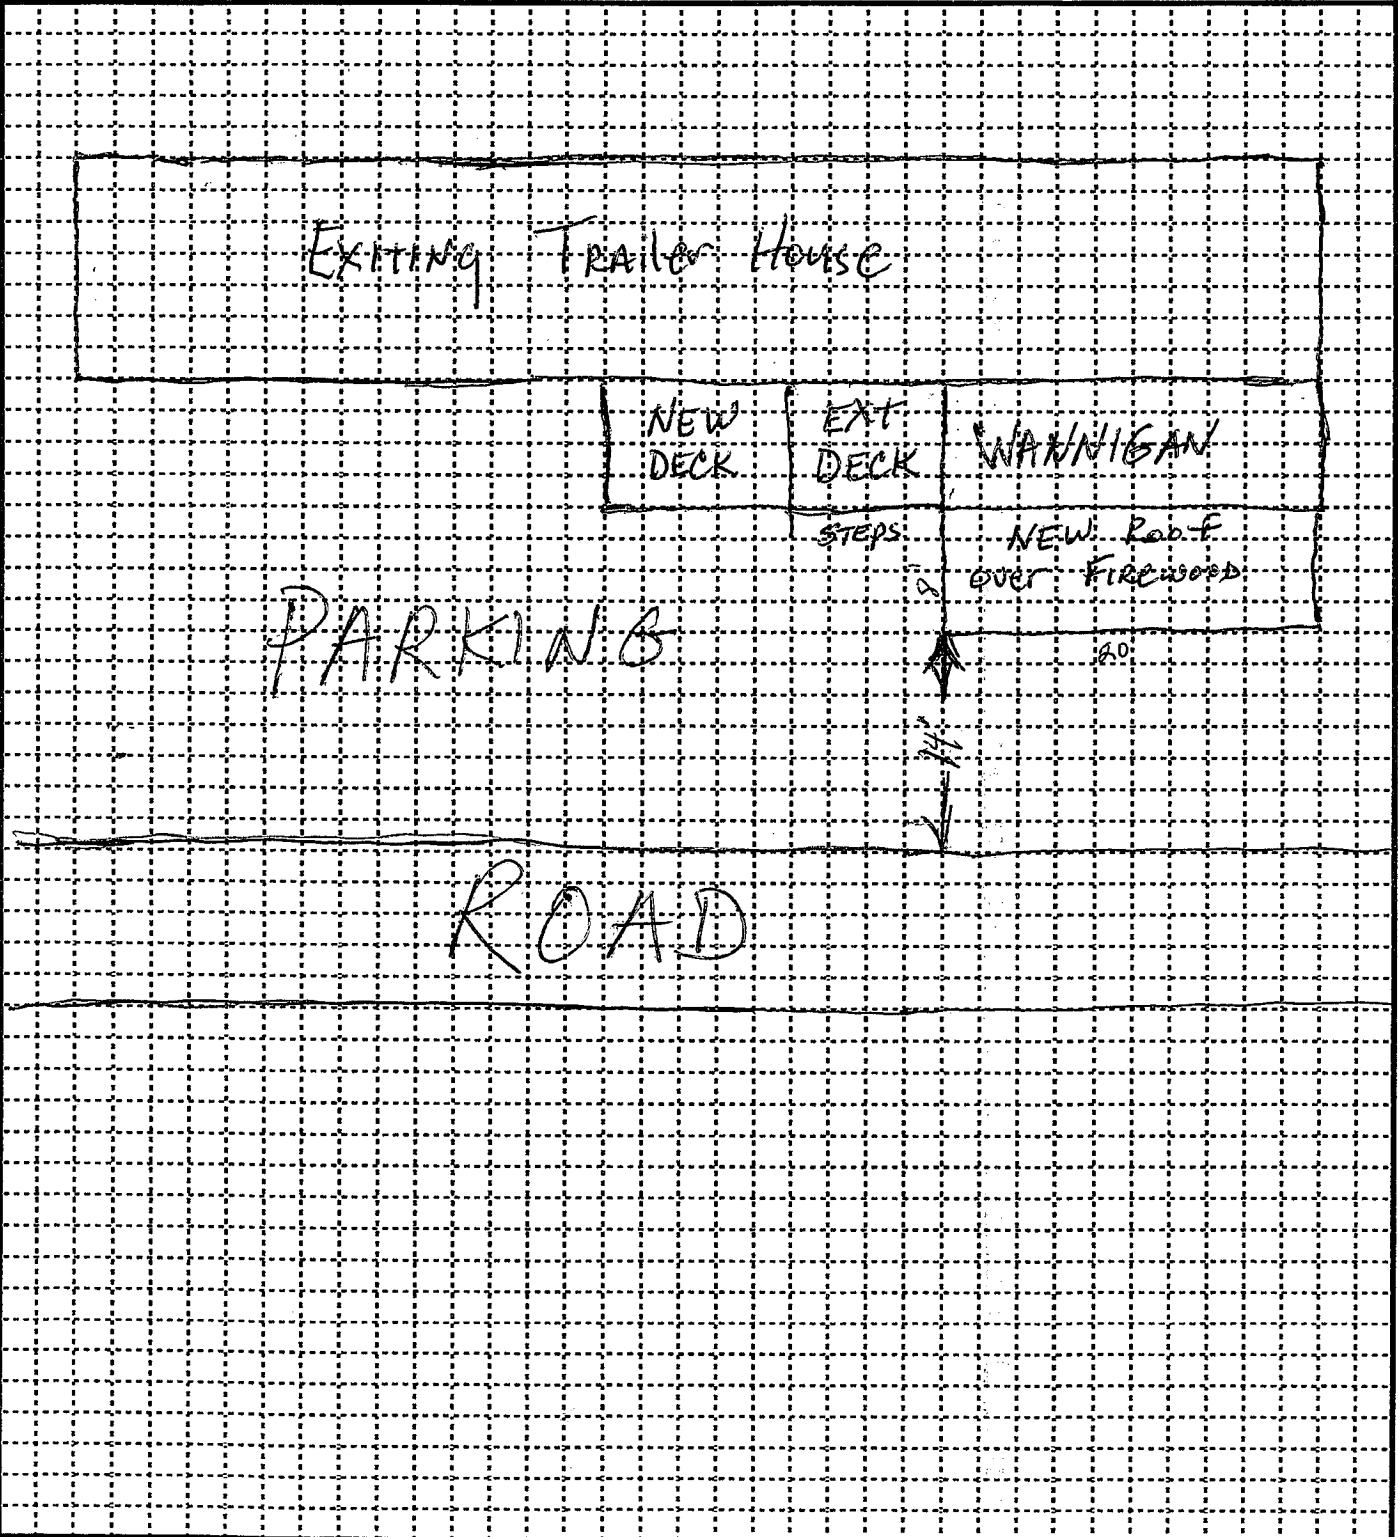 EXITING TRAILER HOUSE
NEW
DECK
EXT
DECK
WANNIGAN
STEPS
NEW ROOF
OVER FIREWOOD
8'
20
PARKING
14'
ROAD